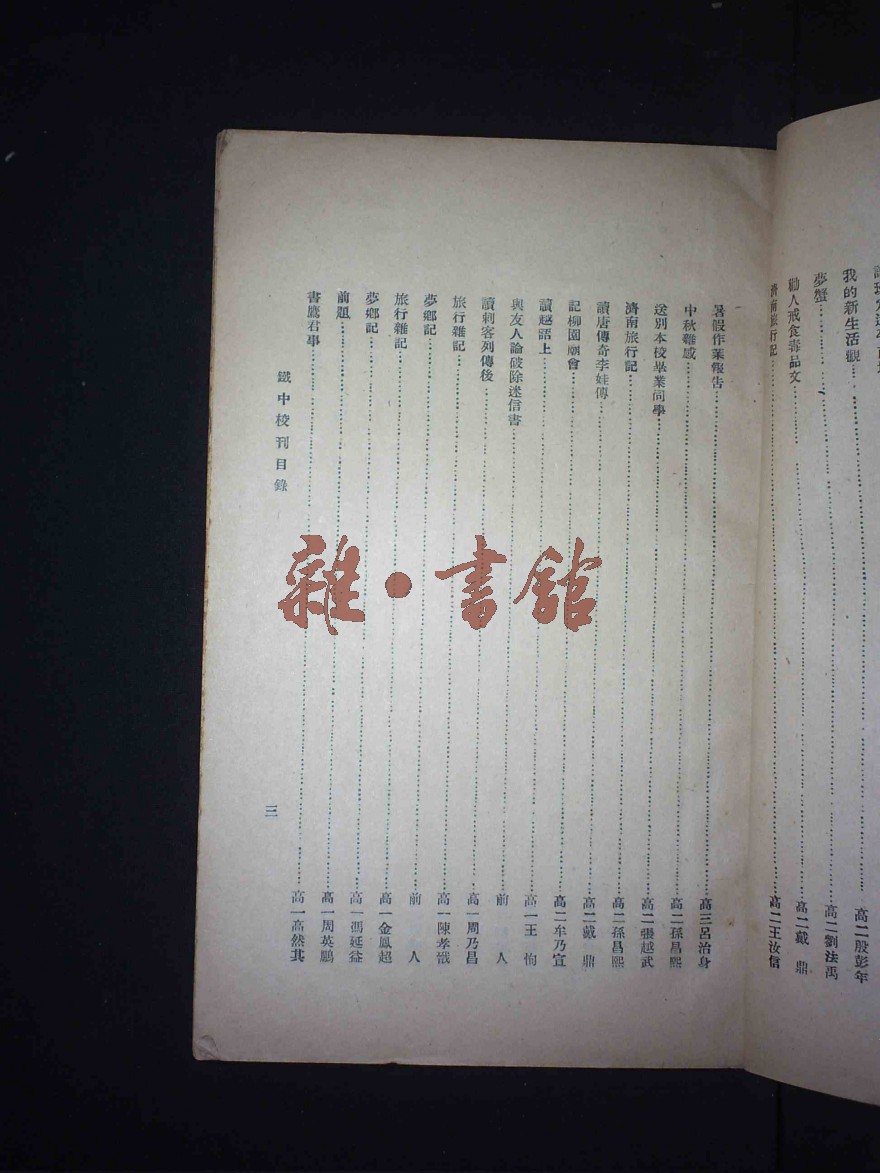 我的新生活觀……高二殷彭年
夢蟹……高二劉法禹
勸人戒食毒品文……高二戴 鼎
濟南旅行記……高二王汝信
暑假作業報告……高三呂治身
中秋雜感……高二孫昌熙
送別本校畢業同學……高二張越武
濟南旅行記……高二孫昌熙
讀唐傳奇李娃傳……高二戴 鼎
記柳園廟會……高二牟乃宣
讀越語上……高一王 恂
與友人論破除迷信書……前 人
讀刺客列傳後……高一周乃昌
旅行雜記……高一陳孝
夢鄉記……前 人
旅行雜記……高一金鳳超
夢鄉記……高一馮延益
前題……高一周英鵬
書鷹君事……高一高然其
鐵中校刊目錄
三
雜·書館